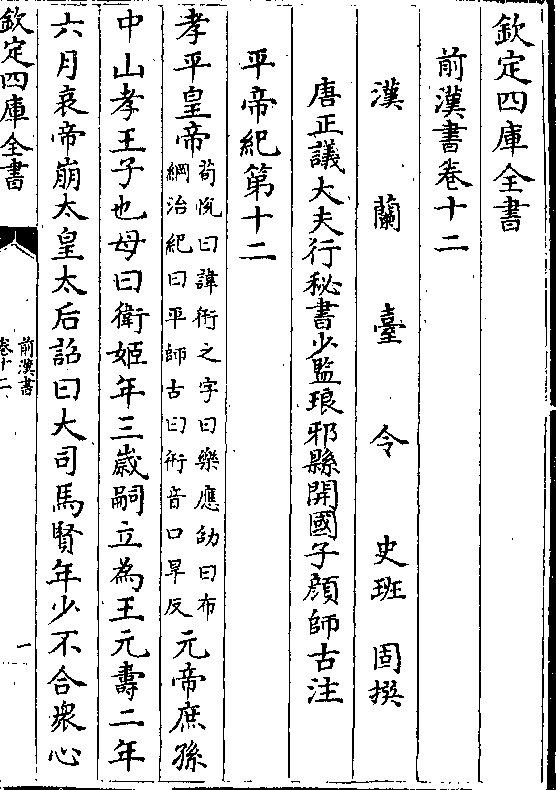 欽定四庫全書
前漢書卷十二
漢蘭臺令史班固撰
唐正議大夫行秘書少監琅邪縣開國子顔師古注
平帝紀第十二
孝平皇帝
荀悅曰諱衎之字曰樂應劭曰布
綱治紀曰平師古曰衎音口旱反
元帝庶孫
中山孝王子也母曰衛姬年三歲嗣立為王元壽二年
六月哀帝崩太皇太后詔曰大司馬賢年少不合衆心
欽定四庫全書
前漢書
卷十二
一